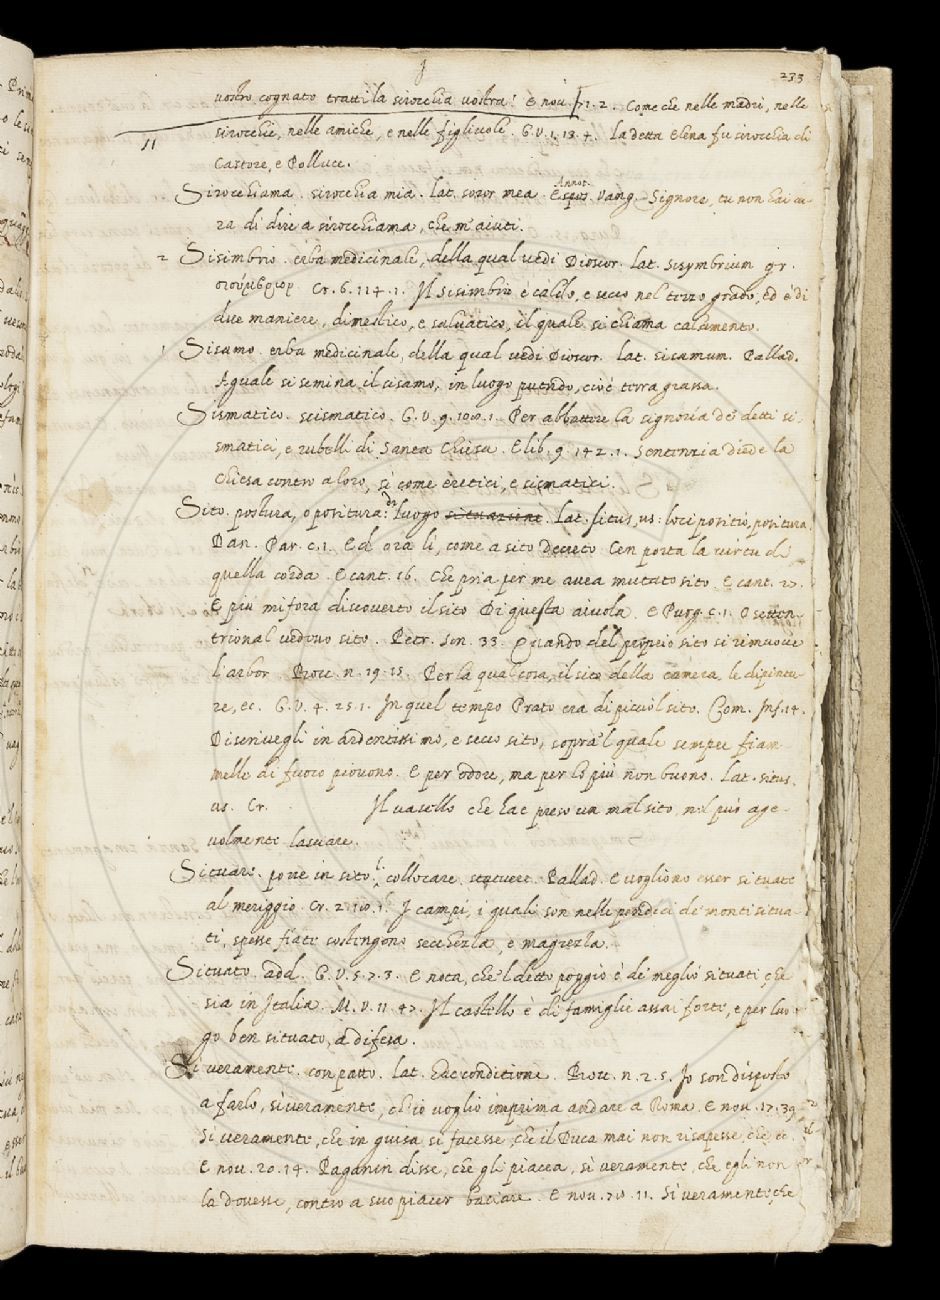 233
vostro cognato tratti la sirocchia vostra! E nou. 71. 2. Come che nelle madri, nelle
sirocchie, nelle amiche, e nelle figliuole. G. V. 1. 13. 4. La detta Elena fu sirocchia di
11
Castore, e Polluce.
Sirocchiama. sirocchia mia. lat. soror mea. Annot. Vang. Signore, tu non hai cu-
ra di dire a sirocchiama, che m'aiuti.
2 Sisimbrio. erba medicinale, della qual vedi Dioscor. lat. sisymbrium gr.
σισύμβριον Cr. 6. 114. 1. Il sisimbrio è caldo, e secco nel terzo grado, ed è di
due maniere, dimestico, e salvatico, il quale si chiama calamento.
1 Sisamo. erba medicinale, della qual vedi Dioscor. lat. sisamum. Pallad.
Aguale si semina il sisamo, in luogo putrido, cioè terra grassa.
Sismatico. scismatico. G. V. 9. 100. 1. Per abbattere la signoria de' detti si-
smatici, e rubelli di Santa Chiesa. E lib. 9. 142. 1. Sentenzia diede la
Chiesa contro a loro, sì come eretici, e sismatici.
Sito. postura, o positura: di luogo situazione. Lat. situs, us: loci positio, positura.
Dan. Par. c. 1. Ed ora lì, come a sito decreto Cen porta la virtù di
quella corda. E cant. 16. Che pria per me avea mutato sito. E cant. 27.
E più mi fora discoverto il sito Di questa aiuola. E Purg. c. 1. O setten-
trional vedovo sito. Petr. Son. 33. Quando dal proprio sito si rimuove
l'arbor. Bocc. n. 19. 15. Per la qual cosa, il sito della camera, le dipintu-
re, ec. G. V. 4. 25. 1. In quel tempo Prato era di picciol sito. Com. Inf. 14.
Discrivegli in ardentissimo, e secco sito, sopra 'l quale sempre fiam-
melle di fuoco piovono. E per odore, ma per lo più non buono. Lat. situs.
us. Cr. Il vasello che hae preso un mal sito, nol può age-
volmente lasciare.
Situare. porre in sito. l. collocare. statuere. Pallad. E vogliono esser situate
al meriggio. Cr. 2. 20. 1. I campi, i quali son nelle pendici de' monti situa-
ti, spesse fiate costringono secchezza, e magrezza.
Situato. add. G. V. 5. 7. 3. E nota, che 'l detto poggio è de' meglio situati che
sia in Italia. M. V. 11. 47. Il castello è di famiglie assai forte, e per luo-
go ben situato, a difesa.
Sì veramente. con patto. lat. hac conditione. Bocc. n. 2. 5. Io son disposto
a farlo, sì veramente, ch'io voglio imprima andare a Roma. E nou. 17. 39
Sì veramente, che in guisa si facesse, che il Duca mai non risapesse, che ec.
E nou. 20. 14. Paganin disse, che gli piacea, sì veramente, che egli non
la dovesse, contro a suo piacer baciare. E nou. 70. 11. Sì veramente, che